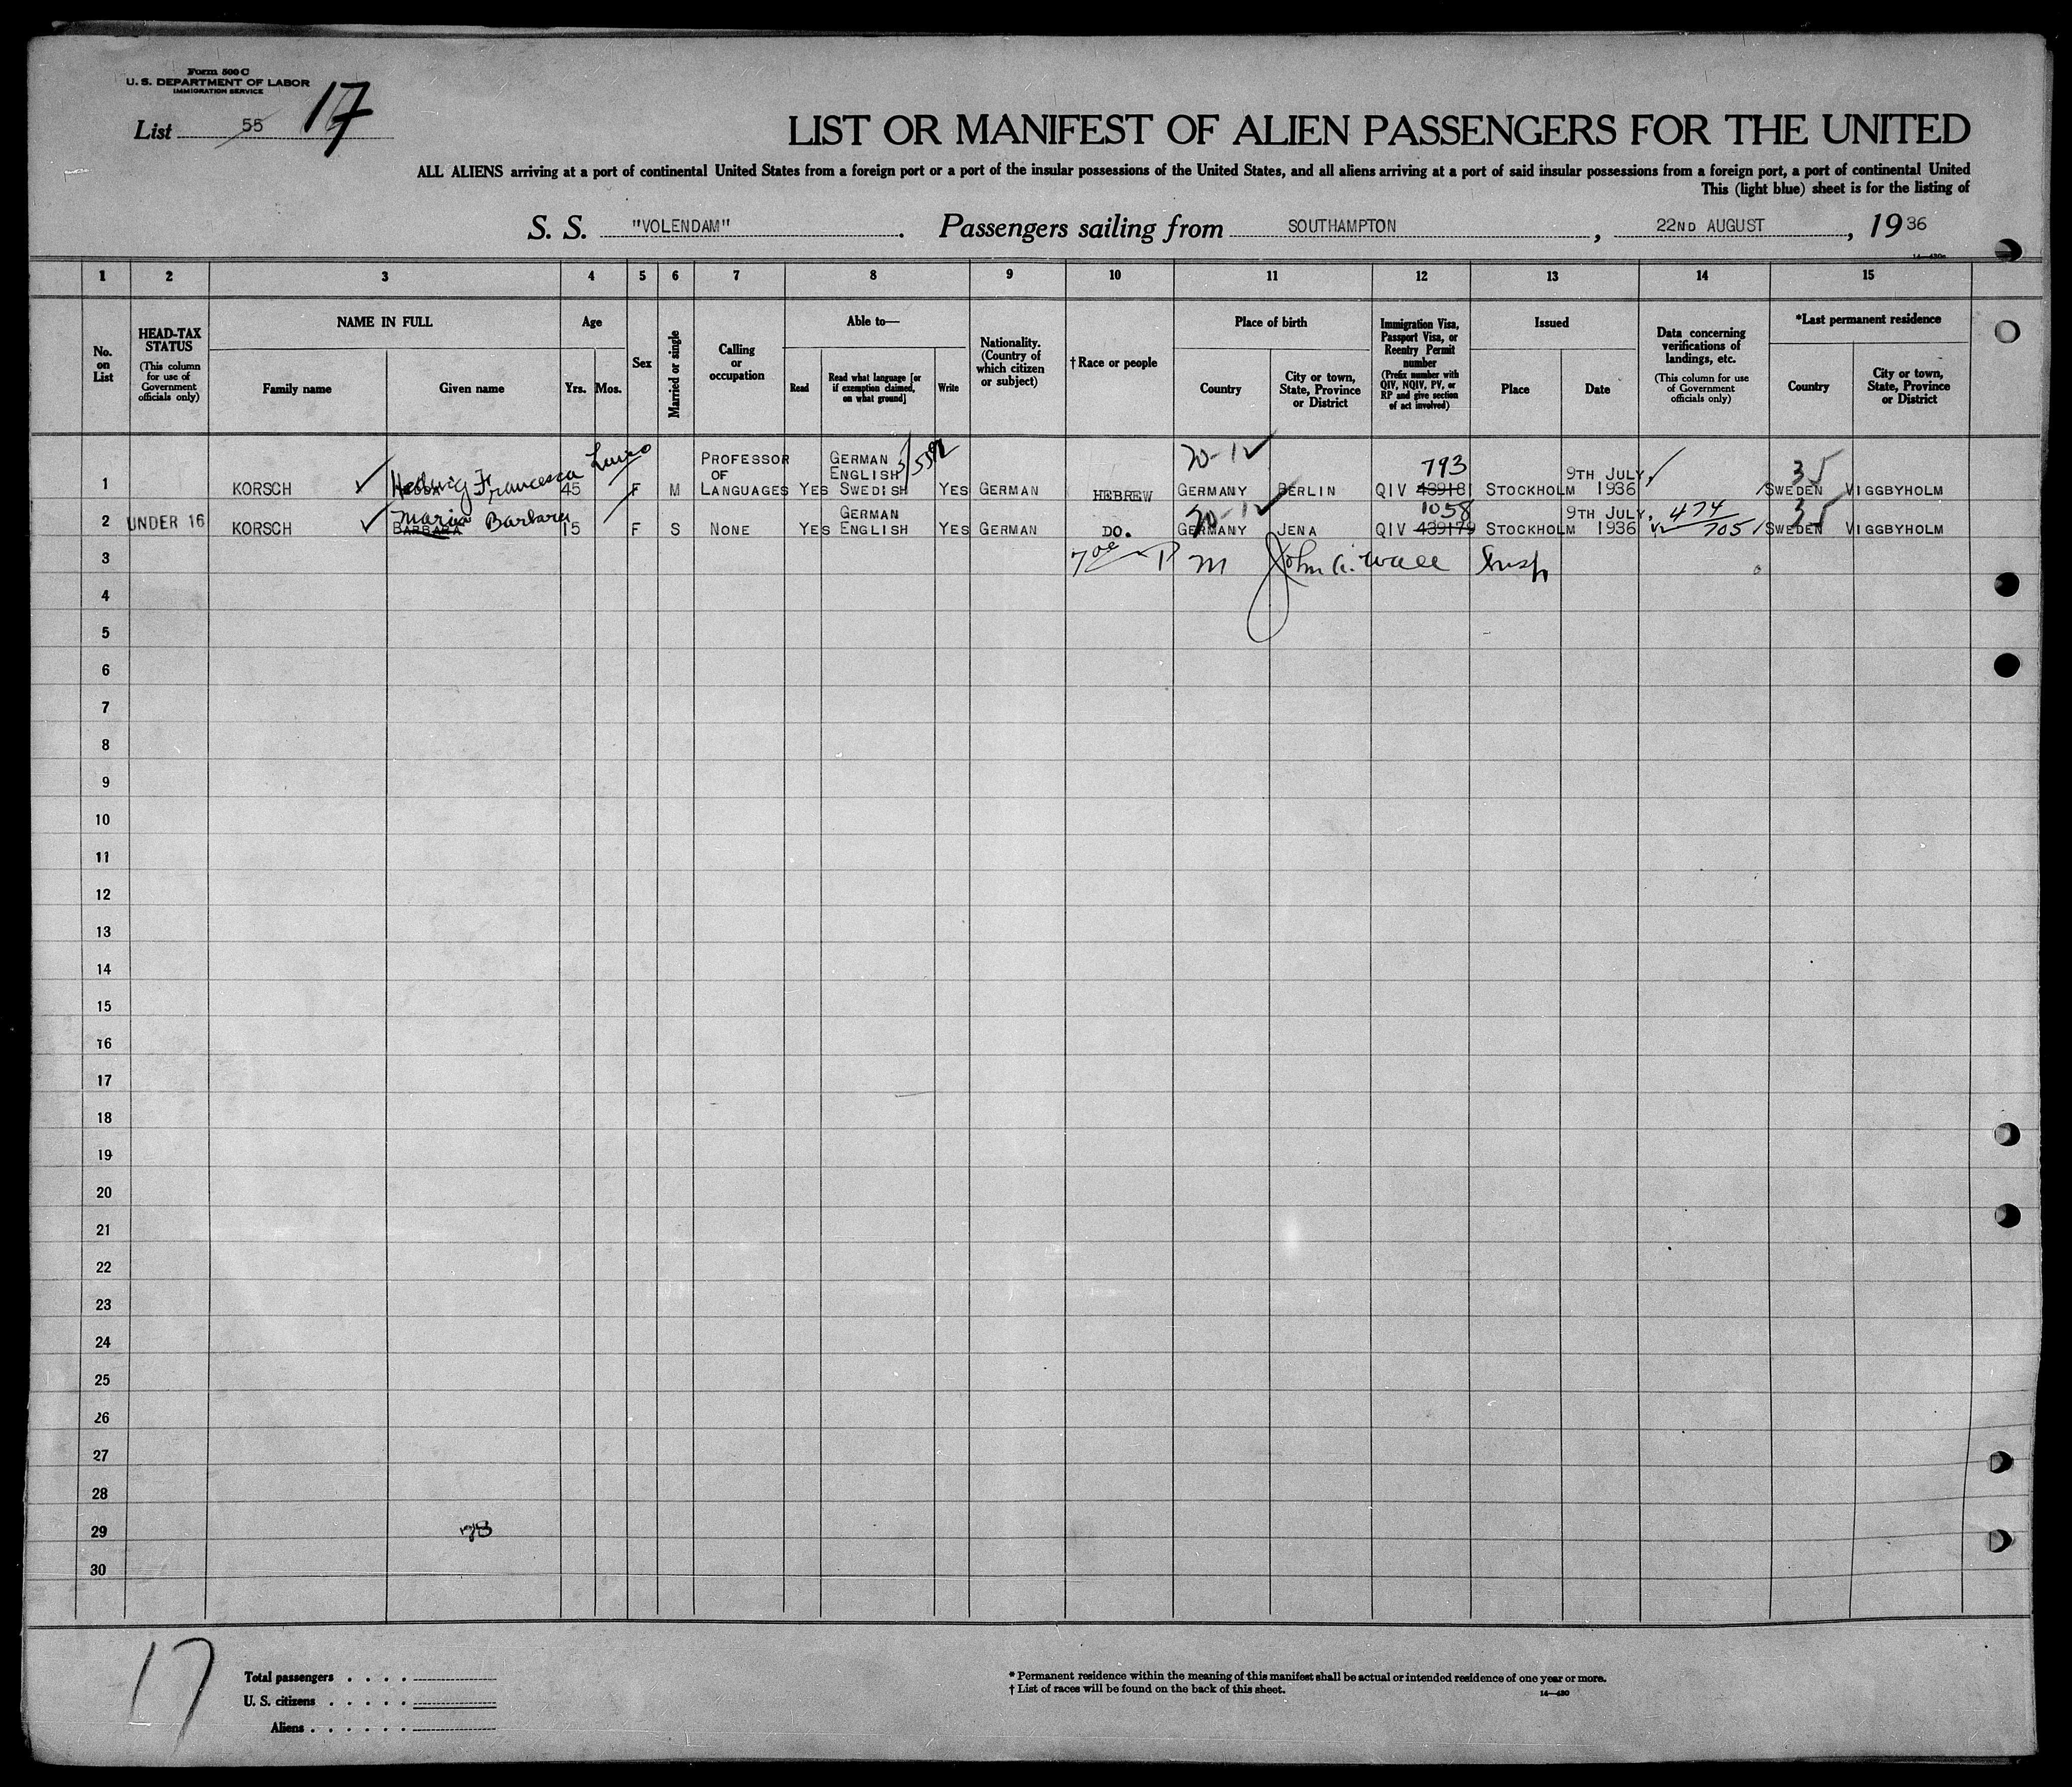 Form 500 C
U. S. DEPARTMENT OF LABOR
IMMIGRATION SERVICE
List 55 17
LIST OR MANIFEST OF ALIEN PASSENGERS FOR THE UNITED
ALL ALIENS arriving at a port of continental United States from a foreign port or a port of the insular possessions of the United States, and all aliens arriving at a port of said insular possessions from a foreign port, a port of continental United
This (light blue) sheet is for the listing of
S. S. "VOLENDAM". Passengers sailing from SOUTHAMPTON, 22ND AUGUST, 1936
1 2 3 4 5 6 7 8 9 10 11 12 13 14 15
No. on List
HEAD-TAX STATUS
(This column for use of Government officials only)
NAME IN FULL
Family name
Given name
Age
Yrs. Mos.
Sex
Married or single
Calling or occupation
Able to—
Read
Read what language [or if exemption claimed, on what ground]
Write
Nationality. (Country of which citizen or subject)
† Race or people
Place of birth
Country
City or town, State, Province or District
Immigration Visa, Passport Visa, or Reentry Permit number
(Prefix number with QIV, NQIV, PV, or RP and give section of act involved)
Issued
Place
Date
Data concerning verifications of landings, etc.
(This column for use of Government officials only)
*Last permanent residence
Country
City or town, State, Province or District
1 KORSCH Hedwig Francesca 45 F M PROFESSOR OF LANGUAGES YES GERMAN ENGLISH SWEDISH YES GERMAN HEBREW GERMANY BERLIN QIV 43918 793 STOCKHOLM 9TH JULY, 1936 SWEDEN VIGGBYHOLM
2 UNDER 16 KORSCH BARBARA Maria Barbara 15 F S NONE YES GERMAN ENGLISH YES GERMAN DO. GERMANY JENA QIV 439179 1058 STOCKHOLM 9TH JULY, 1936 474 705 SWEDEN VIGGBYHOLM
3 John A. Wall Insp
4
5
6
7
8
9
10
11
12
13
14
15
16
17
18
19
20
21
22
23
24
25
26
27
28
29
30
17
Total passengers . . . .
U. S. citizens . . . . .
Aliens . . . . . .
* Permanent residence within the meaning of this manifest shall be actual or intended residence of one year or more.
† List of races will be found on the back of this sheet.
14—430